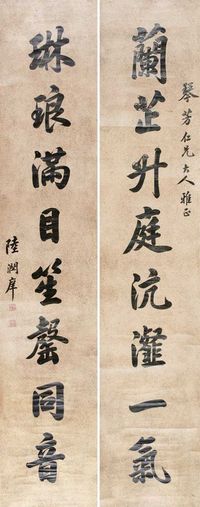 琴芳仁兄大人雅正
蘭芷升庭沆瀣一氣
琳琅滿目笙磬同音
陸潤庠